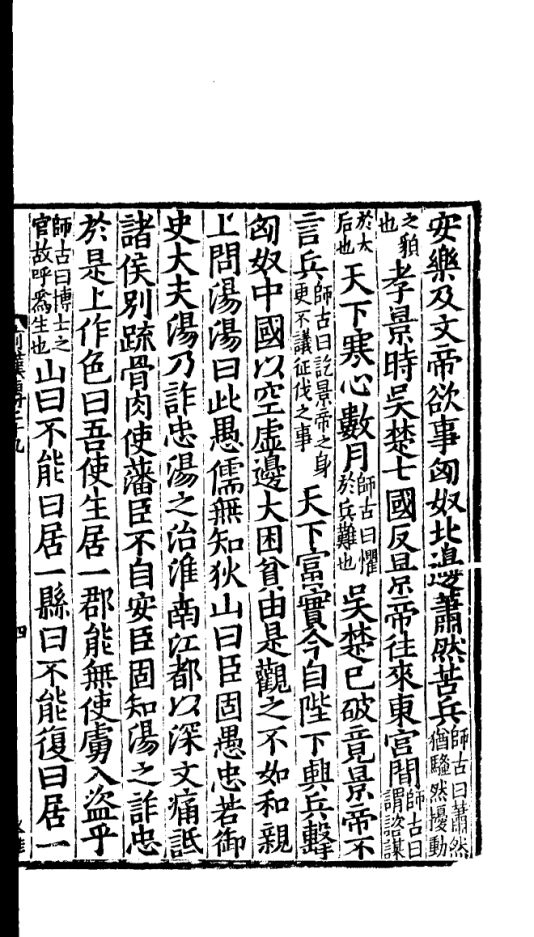 安樂及文帝欲事匈奴北邊蕭然苦兵師古曰蕭然猶騷然擾動
之貌也孝景時吳楚七國反景帝往來東宮間師古曰謂諮謀
於太后也天下寒心數月師古曰懼於兵難也吳楚已破竟景帝不
言兵師古曰訖景帝之身更不議征伐之事天下富實今自陛下興兵擊
匈奴中國以空虛邊大困貧由是觀之不如和親
上問湯湯曰此愚儒無知狄山曰臣固愚忠若御
史大夫湯乃詐忠湯之治淮南江都以深文痛詆
諸侯別疏骨肉使藩臣不自安臣固知湯之詐忠
於是上作色曰吾使生居一郡能無使虜入盜乎
師古曰博士之官故呼爲生也山曰不能曰居一縣曰不能復曰居一
四